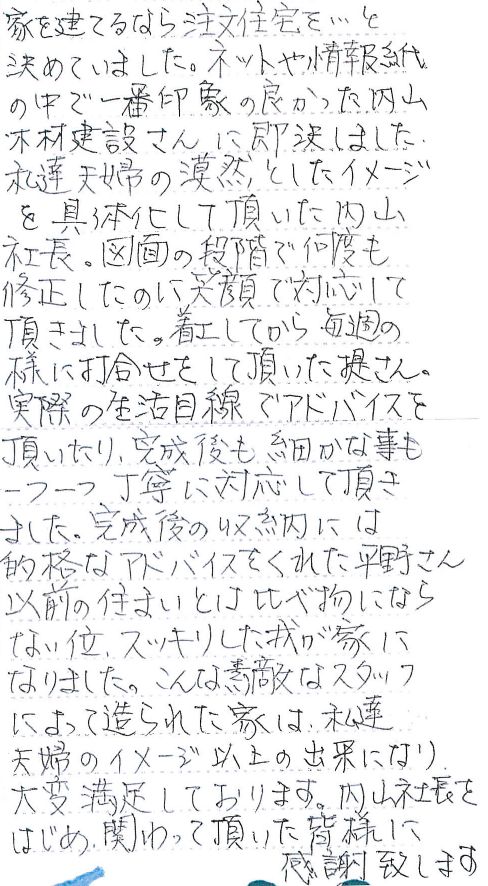 家を建てるなら注文住宅を…と
決めていました。ネットや情報紙
の中で一番印象の良かった内山
木材建設さんに即決しました.
私達夫婦の漠然としたイメージ
を具体化して頂いた内山
社長。図面の段階で何度も
修正したのに笑顔で対応して
頂きました。着工してから毎週の
様に打合せをして頂いた堤さん。
実際の生活目線でアドバイスを
頂いたり、完成後も細かな事も
一つ一つ丁寧に対応して頂き
ました。完成後の収納には
的格なアドバイスをくれた平野さん
以前の住まいとは比べ物になら
ない位、スッキリした我が家に
なりました。こんな素敵なスタッフ
によって造られた家は、私達
夫婦のイメージ以上の出来になり、
大変満足しております。内山社長を
はじめ、関わって頂いた皆様に
感謝致します